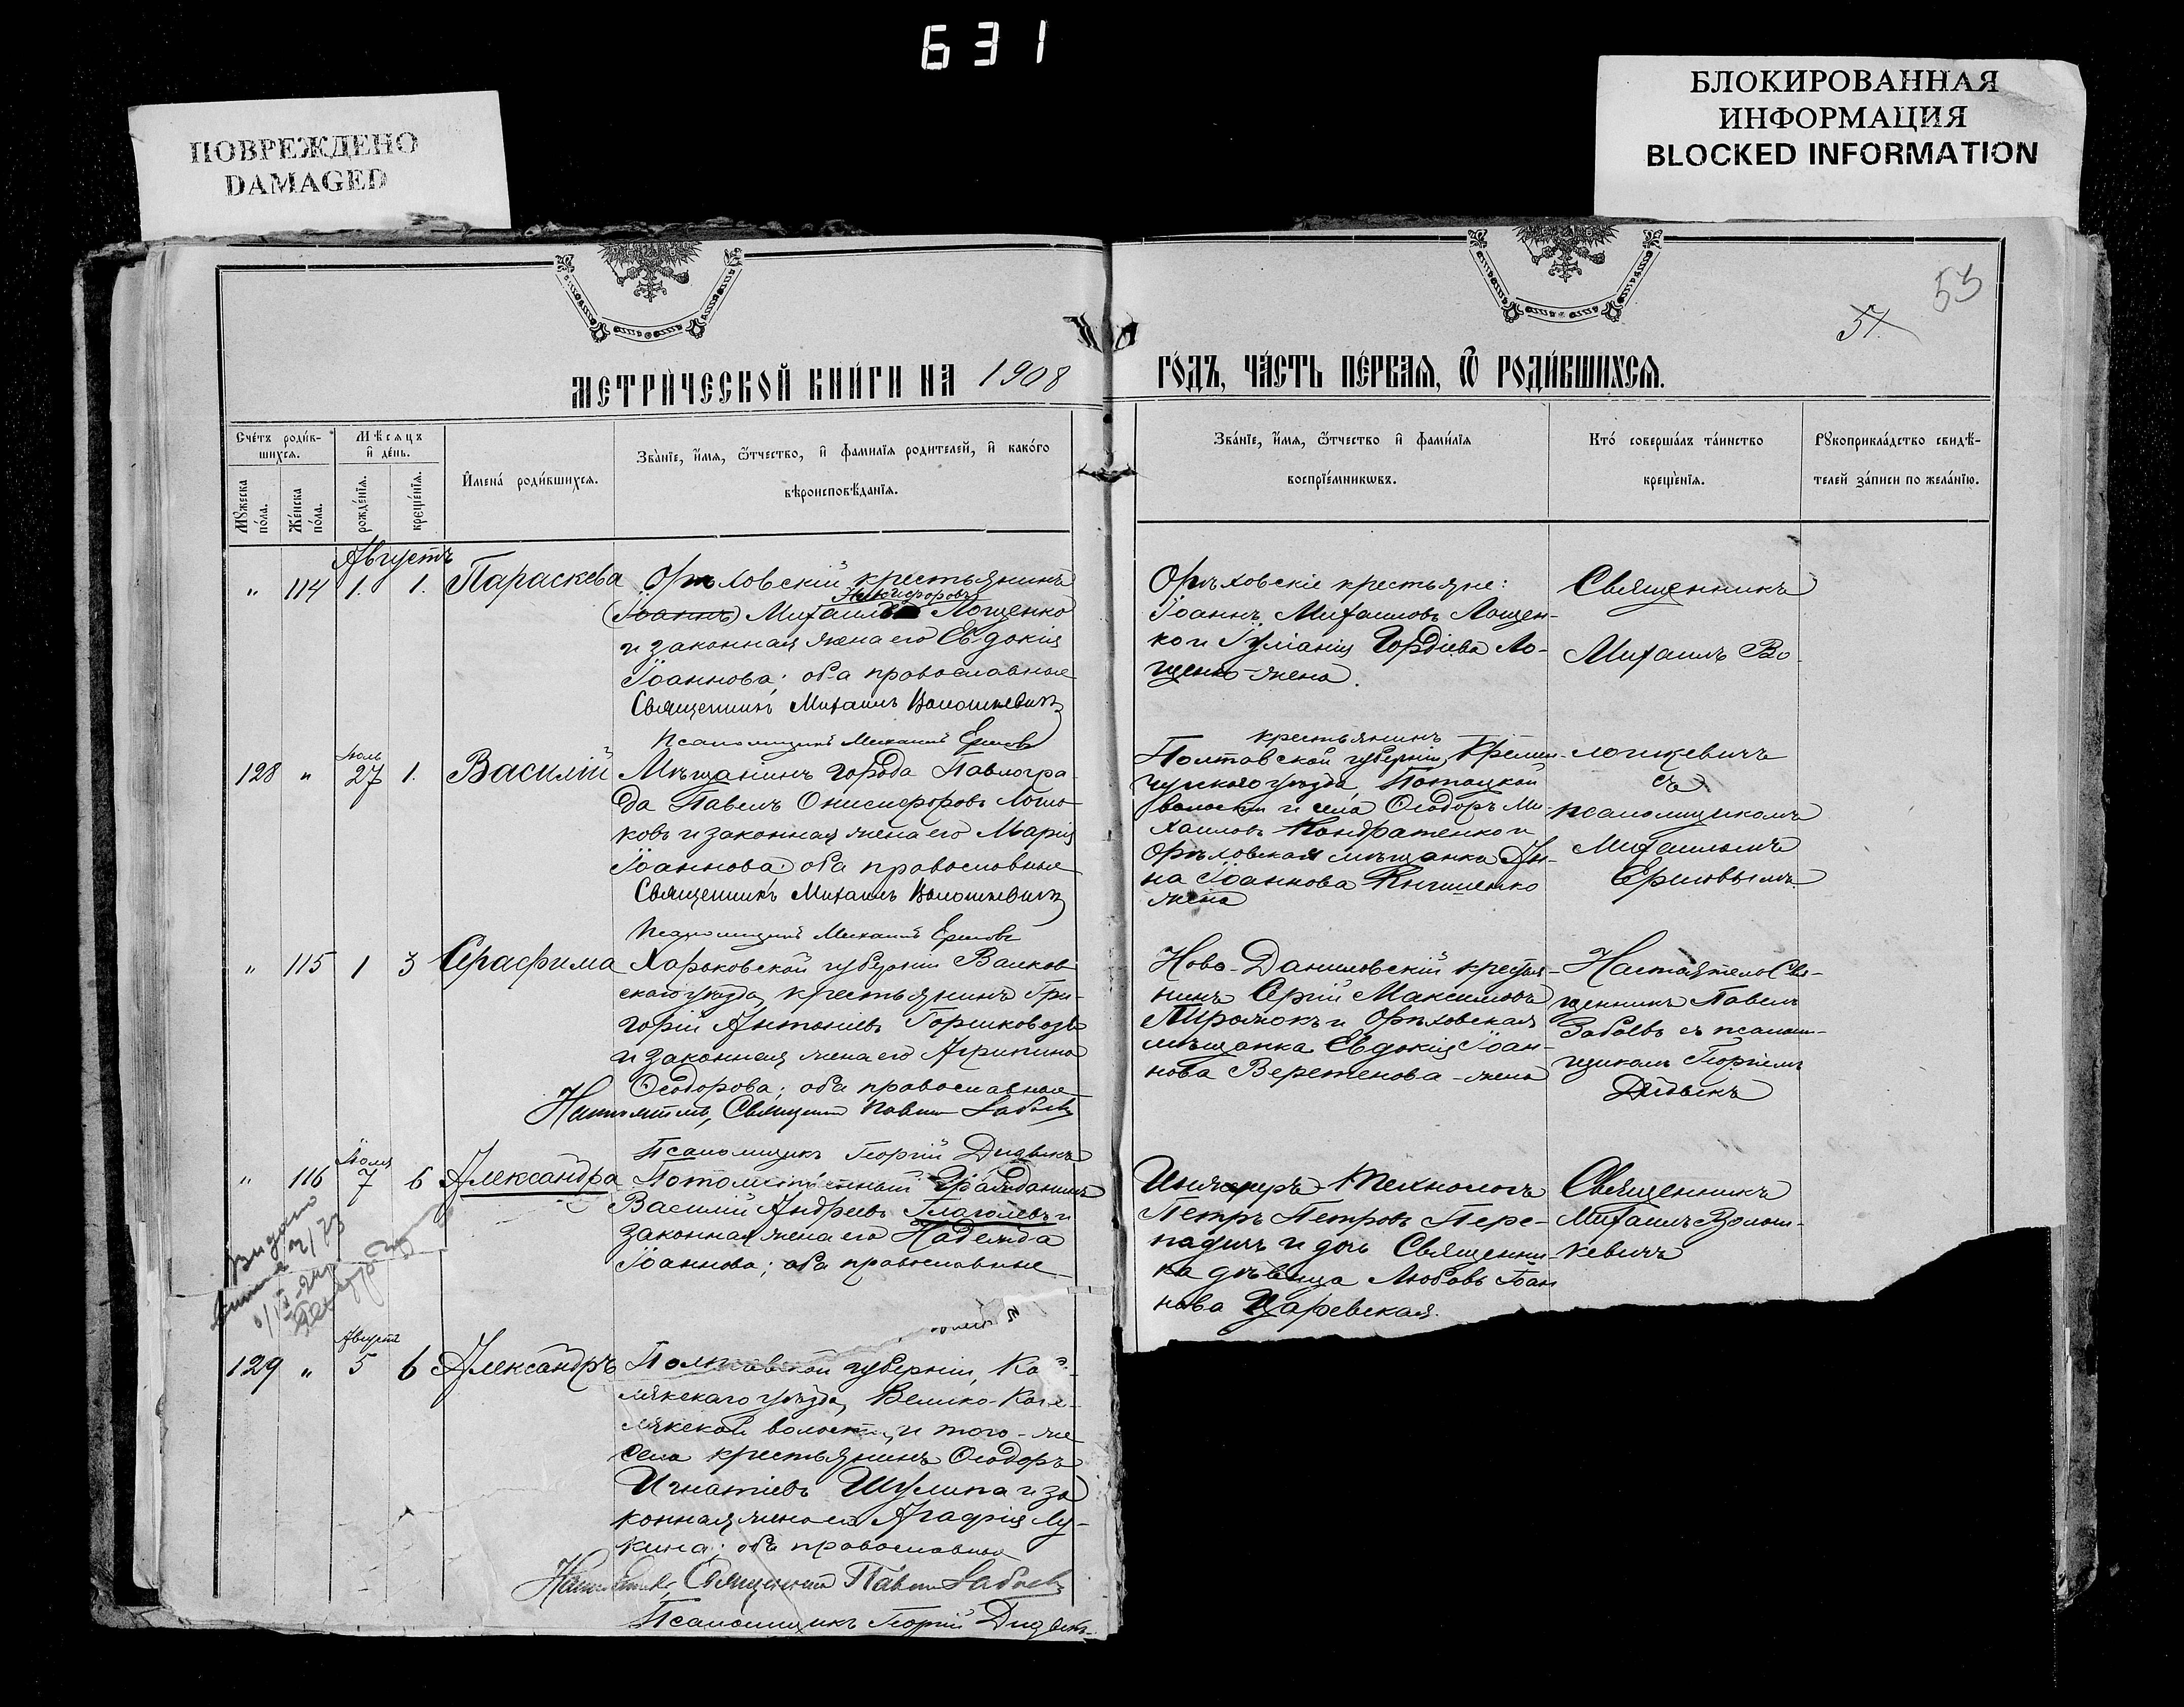 631
ПОВРЕЖДЕНО
DAMAGED
БЛОКИРОВАННАЯ
ИНФОРМАЦИЯ
BLOCKED INFORMATION
53
51.
МЕТРИ́ЧЕСКОЙ КНИ́ГИ НА 1908
ГО́ДЪ, ЧА́СТЬ ПЕ́РВАѦ, Ѿ РОДИ́ВШИХСѦ.
Сче́тъ роди́в-
шихсѧ.
Мѣ́сѧцъ
и҆ де́нь.
Мꙋжеска по́ла.
Же́нска по́ла.
рожде́нїѧ.
креще́нїѧ.
И҆мена́ роди́вшихсѧ.
Зва́нїе, и҆́мѧ, ѻ҆́тчество, и҆ фами́лїѧ роди́телей, и҆ како́гѡ
вѣроисповѣ́данїѧ.
Зва́нїе, и҆́мѧ, ѻ҆́тчество и҆ фами́лїѧ
воспрїе́мникѡвъ.
Кто́ соверша́лъ та́инство
креще́нїѧ.
Рꙋкоприкла́дство свидѣ́-
телей за́писи по жела́нїю.
Августъ
" 114 1. 1. Параскева
Орѣховскій крестьянинъ
Никифоровъ
(Іоаннъ) Михаилъ Лощенко
и законная жена его Евдокія
Іоаннова; оба православные
Священникъ Михаилъ Волошкевичъ
Псаломщикъ Михаилъ Ершовъ
Орѣховскіе крестьяне:
Іоаннъ Михаиловъ Лощен-
ко и Іуліанія Гордіева Ло-
щенко жена.
Священникъ
Михаилъ Во-
Іюль
128 " 27 1. Василій
Мѣщанинъ города Павлогра-
да Павелъ Онисифоровъ
ковъ и законная жена его Марія
Іоаннова оба православные
Священникъ Михаилъ Волошкевичъ
Псаломщикъ Михаилъ Ершовъ
крестьянинъ
Полтавской губерніи, Кремен-
чугскаго уѣзда, Потоцкой
волости и села Ѳеодоръ Ми-
хаиловъ Кондратенко и
Орѣховская мѣщанка Ан-
на Іоаннова
жена
лошкевичъ
съ
псаломщикомъ
Михаиломъ
Ершовымъ
" 115 1 3 Серафима
Харьковской губерніи Валков-
скаго уѣзда, крестьянинъ Гри-
горій Антоніевъ
и законная жена его Агрипина
Ѳеодорова; оба православные
Настоятель, Священникъ Павелъ Забоевъ
Псаломщикъ Георгій Дидыкъ
Ново-Даниловскій крестья-
нинъ Сергій Максимовъ
Пирожокъ и Орѣховская
мѣщанка Евдокія Іоан-
нова Веретенова-жена
Настоятель Свя-
щенникъ Павелъ
Забоевъ съ псалом-
щикомъ Георгіемъ
Дидыкъ
Іюля
" 116 7 6 Александра
Потомственный Гражданинъ
Василій Андреевъ Глаголевъ и
законная жена его Надежда
Іоаннова; оба православные
Инженеръ-Технологъ
Петръ Петровъ Пере-
падичъ и дочь Священни-
ка дѣвица Любовь Іоан
нова Царевская.
Священникъ
Михаилъ Волош-
кевичъ
Августъ
129 " 5 6 Александръ
Полтавской губерніи, Ко
лякскаго уѣзда, Велико-Кобе-
лякской волости, и того-же
села крестьянинъ Ѳеодоръ
Игнатіевъ Шулипа и за
конная жена его Агафія Лу-
кина; оба православные
Настоятель, Священникъ Павелъ Забоевъ
Псаломщикъ Георгій Дидыкъ